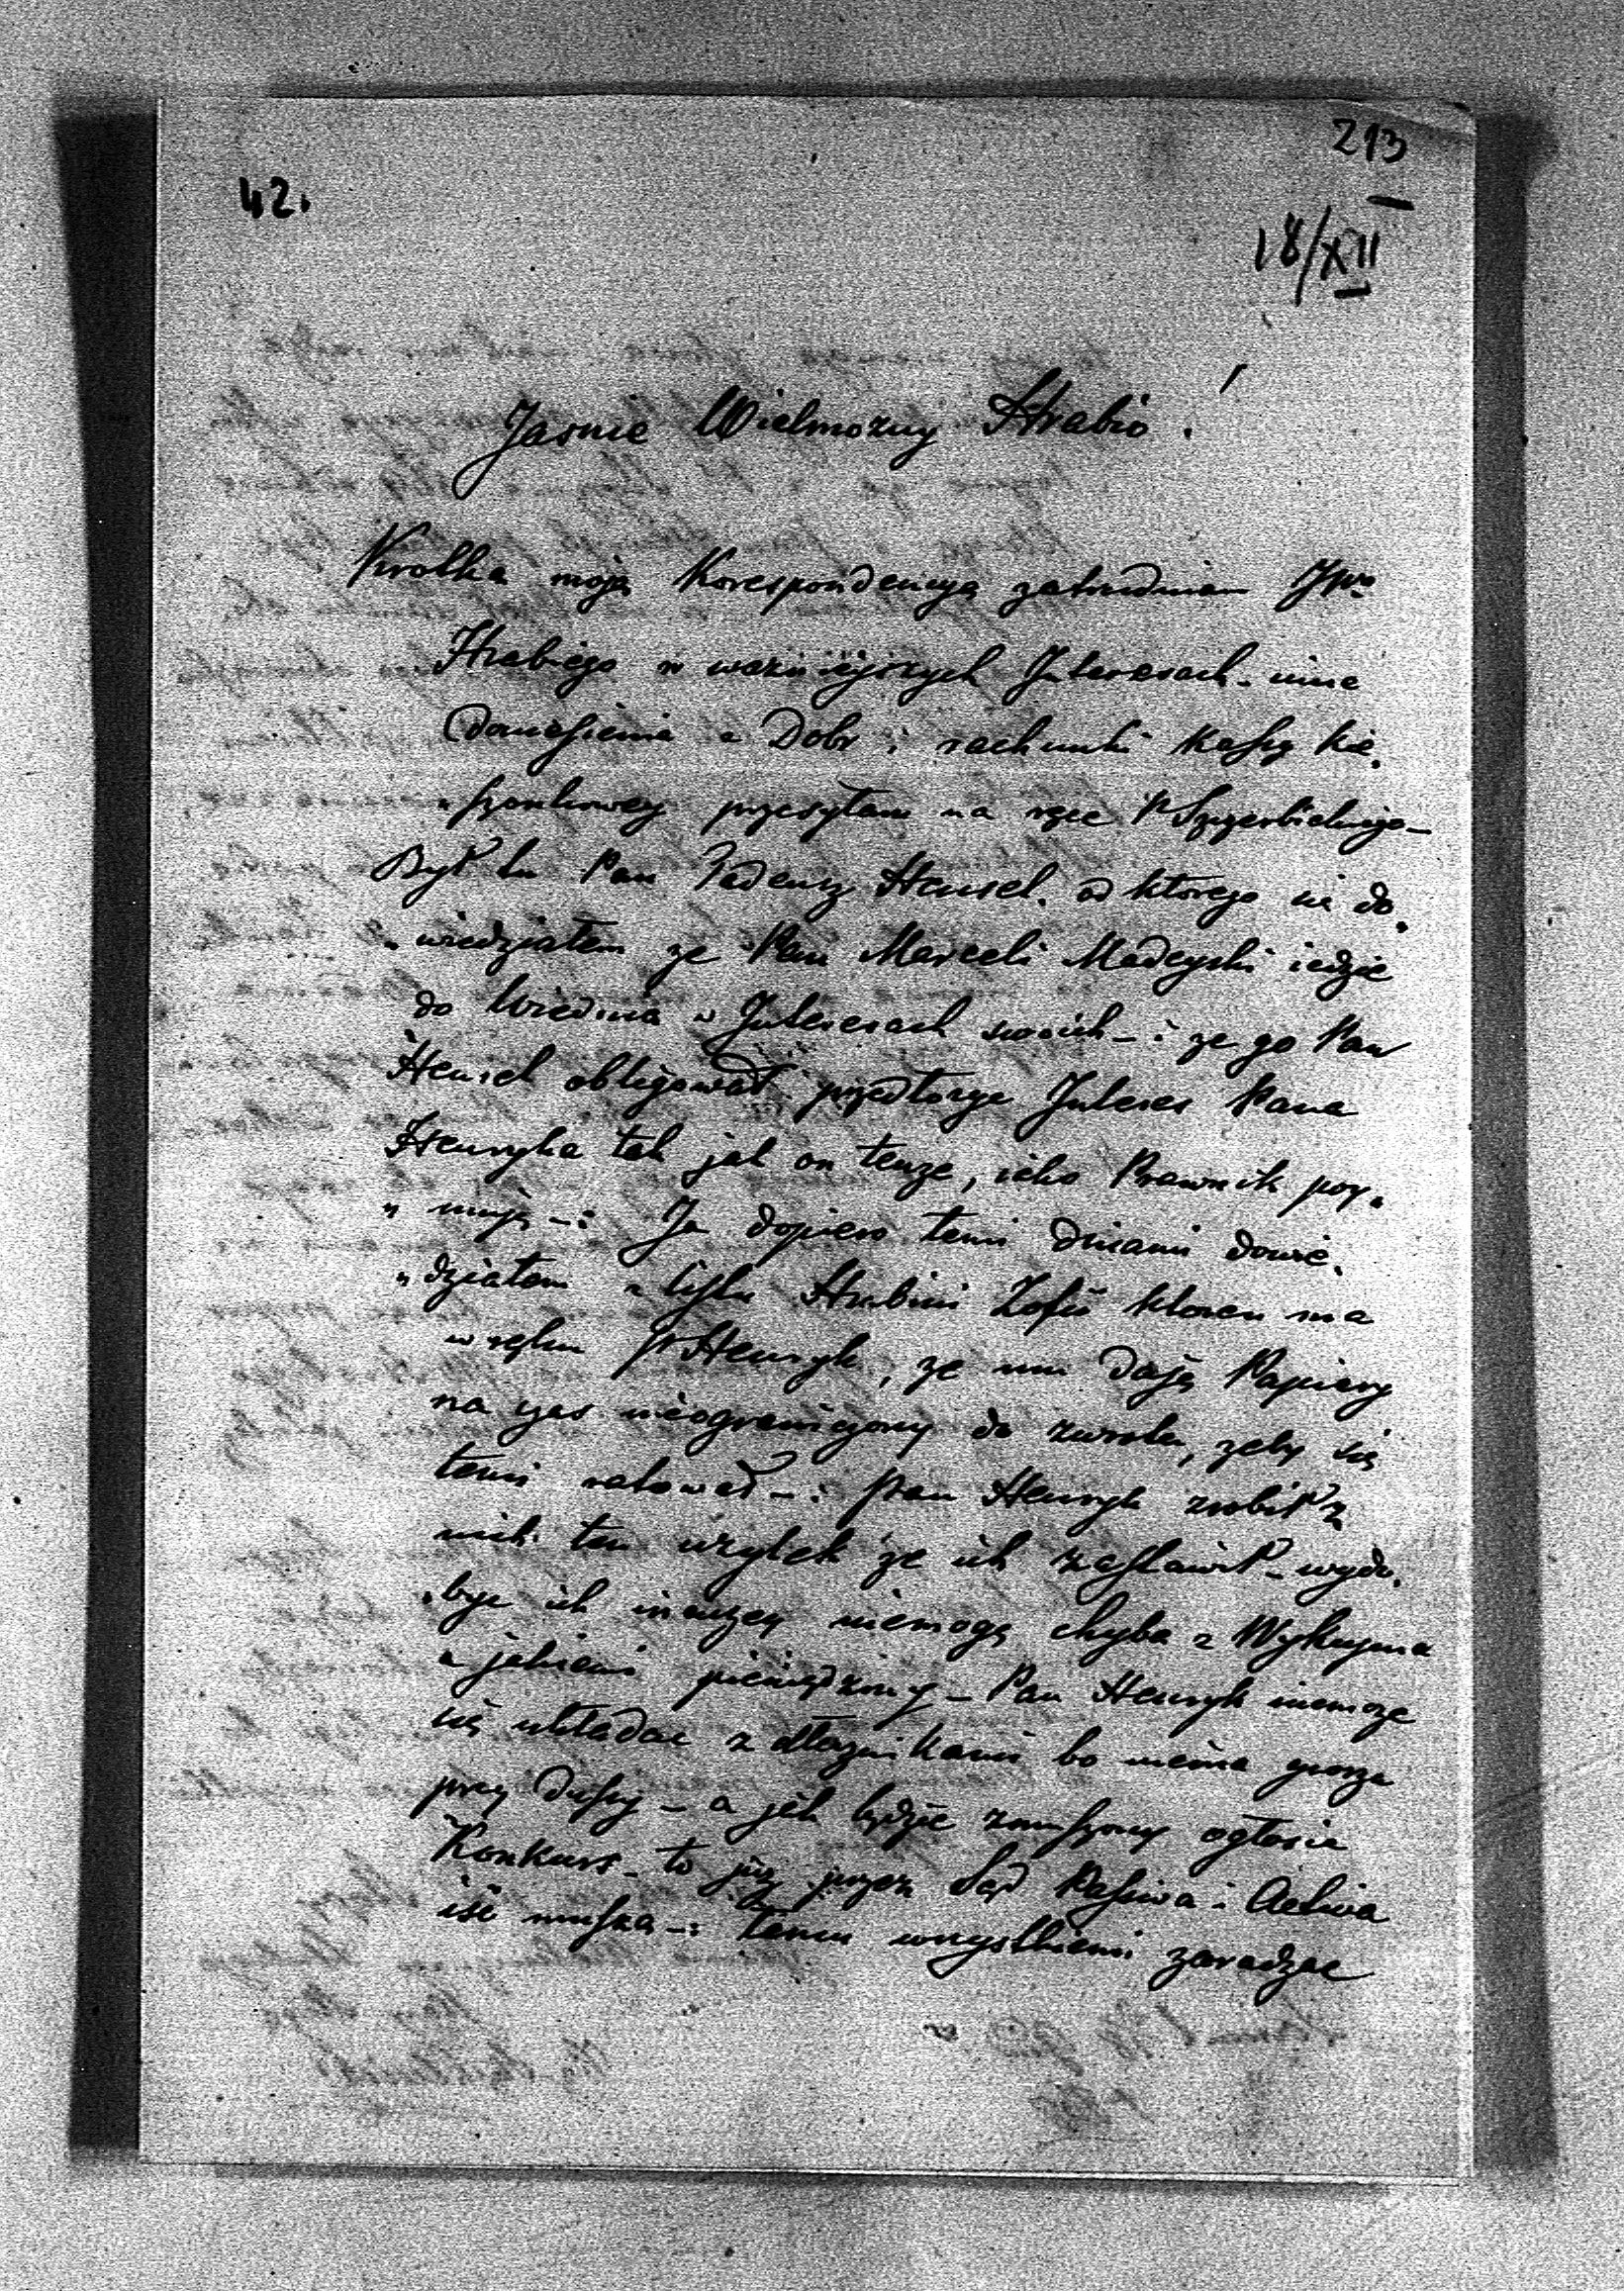 213
42.
18/XII
Jasnie Wielmozny Hrabio!
Krotka moją Korespondencyą zatrudniam JW°
Hrabiego w wazniejszych Interesach - inne
Doniesienia z Dobr i rachunki Kassy Kie„
„szonkowey przesyłam na ręce P Szczerbickiego -
Był tu Pan Tadeusz Hensel. od ktorego się do„
„wiedziałem ze Pan Marceli Madeyski iedzie
do Wiednia w Interesach swoich - i ze go Pan
Hensel obligował przedłozyc Interes Pana
Henryka tak jak on tenze, iako Prawnik poy„
„muje -: Ja dopiero temi dniami dowie„
„działem z listu Hrabini Zofii ktoren ma
w ręku P Henryk, ze mu dają Papiery
na czas nieograniczony do zwrotu, zeby się
temi ratował -: Pan Henryk zrobił z
nich ten uzytek ze ich zastawił - wydo„
„byc ich inaczey niemogą chyba z Wykupna
z jakiemi pieniędzmy - Pan Henryk niemoze
się układac z dłuznikami bo niema grosza
przy duszy - a jak będzie zmuszony ogłosic
Konkurs - to juz przez Sąd Passiwa i Activa
iść muszą -: temu wszystkiemi zaradzac